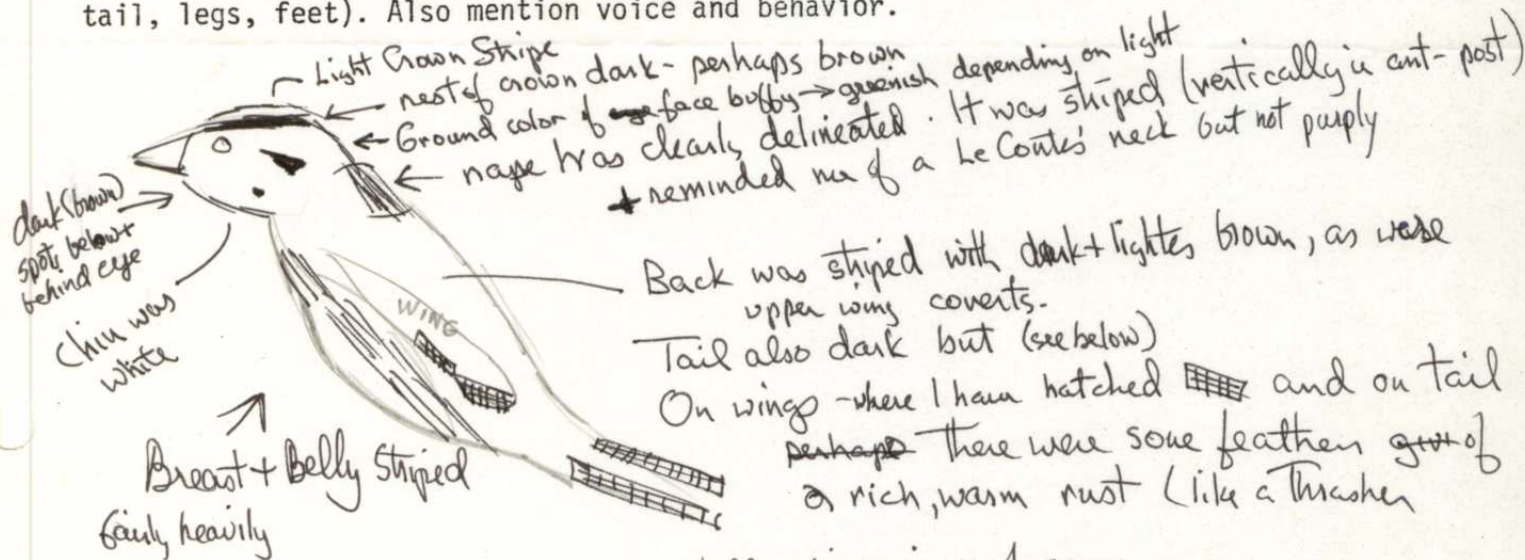 tail, legs, feet). Also mention voice and behavior.
Light Crown Stripe
rest of crown dark - perhaps brown
Ground color of face buffy → greenish depending on light
nape was clearly delineated. It was striped (vertically ie ant-post)
+ reminded me of a Le Conte's neck but not purply
dark (brown)
spots below +
behind eye
Chin was
white
WING
Back was striped with dark + lighter brown, as were
upper wing coverts.
Tail also dark but (see below)
On wings - where I have hatched and on tail
perhaps there were some feathers of
a rich, warm rust (like a Thrasher
Breast + Belly Striped
fairly heavily